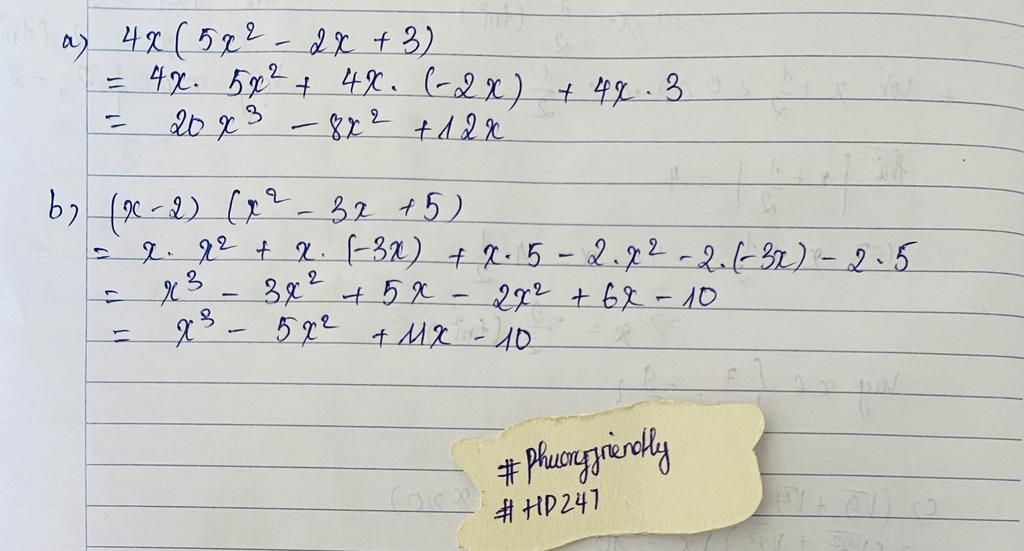 a) 4x(5x² - 2x + 3)
= 4x. 5x² + 4x. (-2x) + 4x. 3
= 20x³ - 8x² + 12x
b) (x-2) (x² - 3x + 5)
= x. x² + x. (-3x) + x. 5 - 2. x² - 2. (-3x) - 2. 5
= x³ - 3x² + 5x - 2x² + 6x - 10
= x³ - 5x² + 11x - 10
#phuongfriendly
#HD247